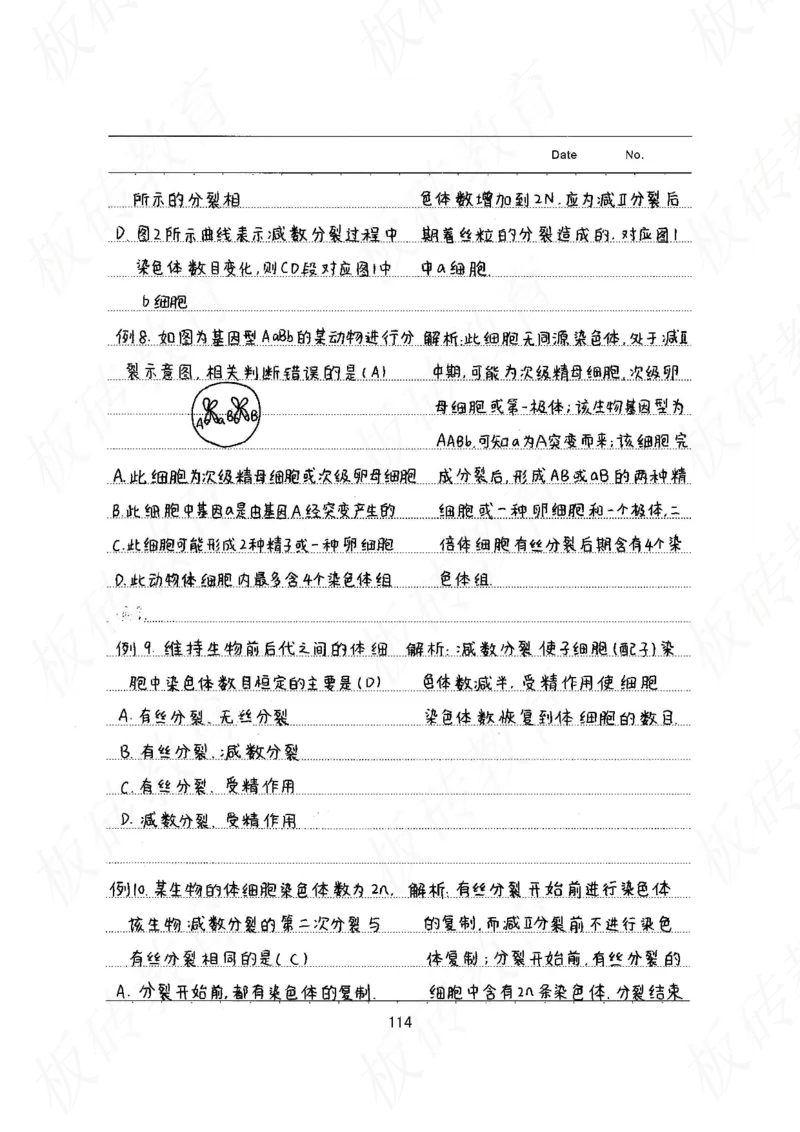 Date No.
所示的分裂相
D. 图2所示曲线表示减数分裂过程中
染色体数目变化,则CD段对应图1中
b细胞
色体数增加到2N.应为减Ⅱ分裂后
期着丝粒的分裂造成的.对应图1
中a细胞.
例8. 如图为基因型AaBb的某动物进行分
裂示意图,相关判断错误的是(A)
A a B B
A.此细胞为次级精母细胞或次级卵母细胞
B.此细胞中基因a是由基因A经突变产生的
C.此细胞可能形成2种精子或一种卵细胞
D.此动物体细胞内最多含4个染色体组
解析:此细胞无同源染色体,处于减Ⅱ
中期,可能为次级精母细胞,次级卵
母细胞或第一极体;该生物基因型为
AABb,可知a为A突变而来;该细胞完
成分裂后,形成AB或aB的两种精
细胞或一种卵细胞和一个极体,二
倍体细胞有丝分裂后期含有4个染
色体组.
例9. 维持生物前后代之间的体细
胞中染色体数目恒定的主要是(D)
A. 有丝分裂、无丝分裂
B. 有丝分裂、减数分裂
C. 有丝分裂、受精作用
D. 减数分裂、受精作用
解析:减数分裂使子细胞(配子)染
色体数减半,受精作用使细胞
染色体数恢复到体细胞的数目.
例10.某生物的体细胞染色体数为2n,
该生物减数分裂的第二次分裂与
有丝分裂相同的是(C)
A. 分裂开始前,都有染色体的复制.
解析:有丝分裂开始前进行染色体
的复制,而减Ⅱ分裂前不进行染色
体复制;分裂开始前,有丝分裂的
细胞中含有2n条染色体.分裂结束
114
板砖教育